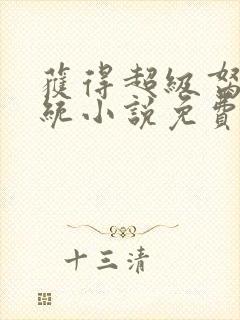 獲得超級
統小說免費
十三清